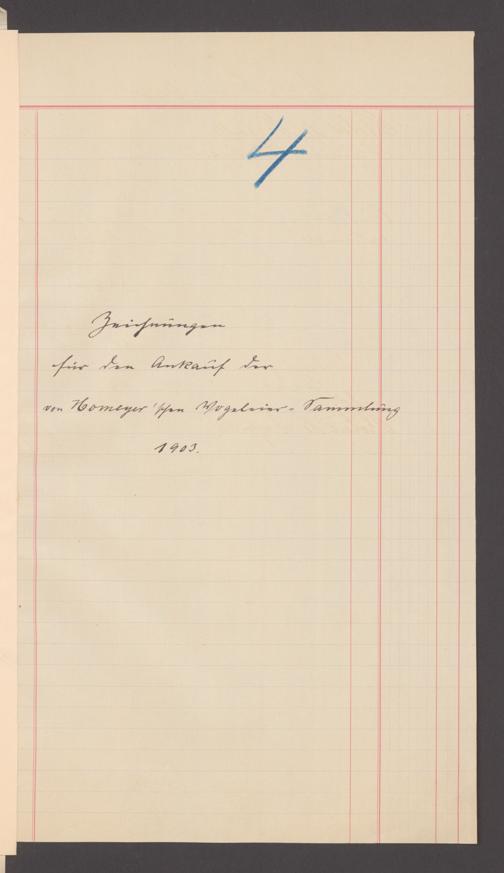 4
Zeichnungen
für den Ankauf der
von Homeyer'schen Vogeleier-Sammlung
1903.